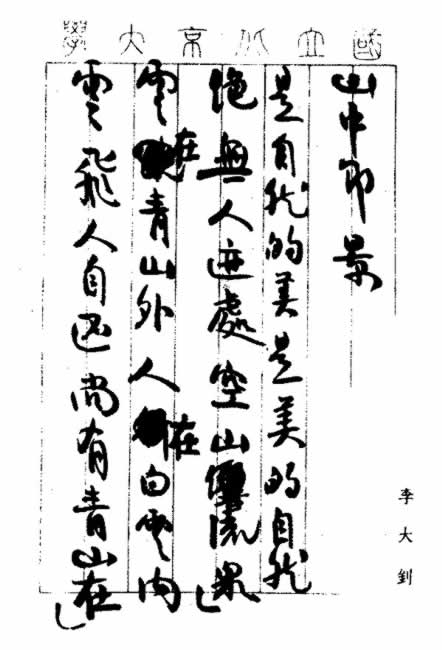 國立北京大學
山中即景
是自然的美是美的自然
絶無人迹處空山響流泉
雲在青山外人在白雲内
雲飛人自還尚有青山在
李大釗